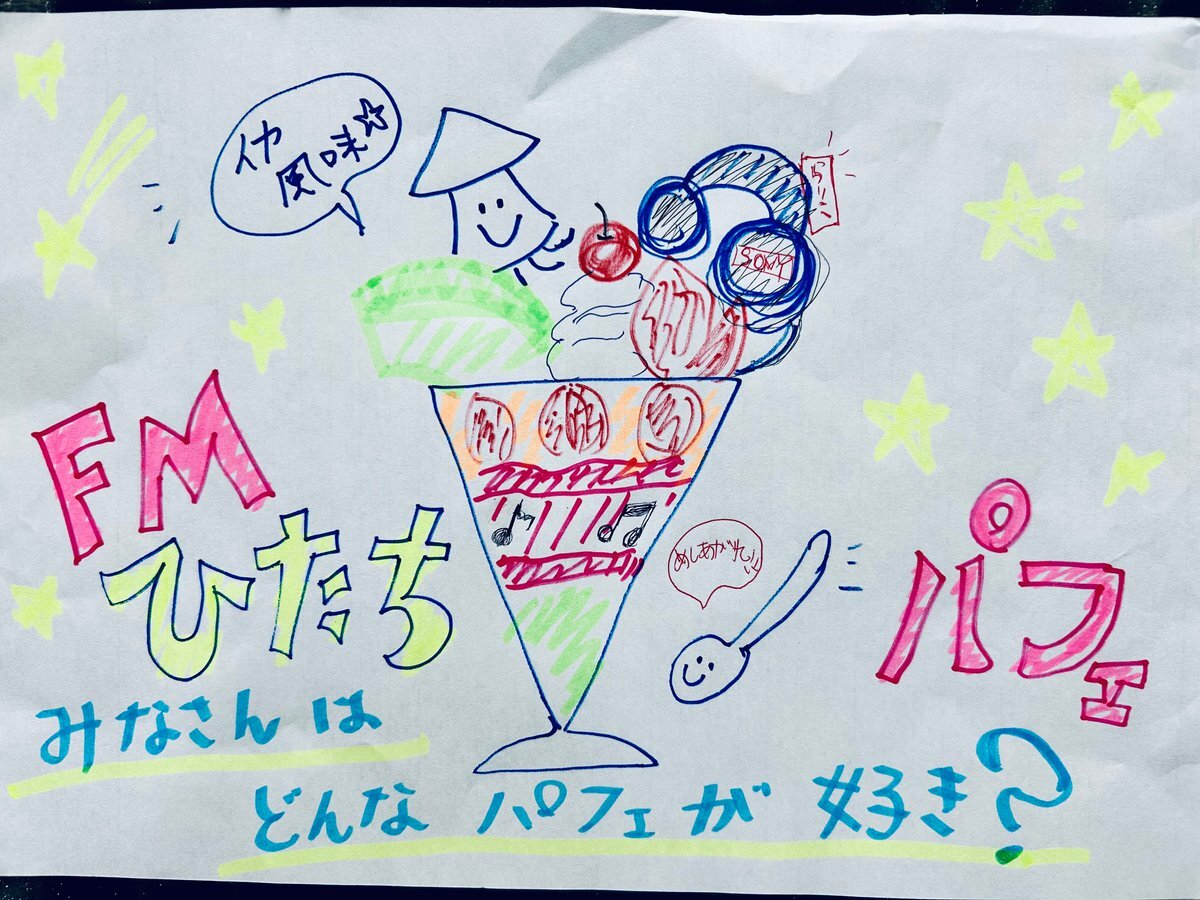 イカ
風味☆
SONY
FM
ひたち
パフェ
めしあがれ
みなさんは
どんなパフェが好き?